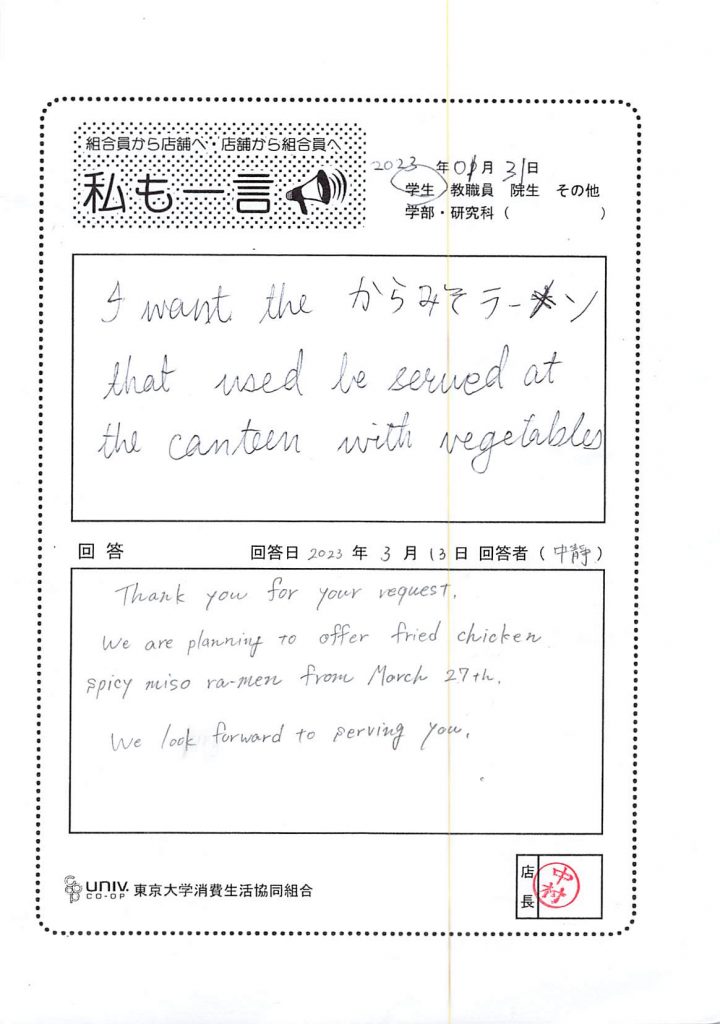 組合員から店舗へ・店舗から組合員へ
私も一言
2023 年 01 月 31 日
学生 教職員 院生 その他
学部・研究科（ ）
I want the からみそラーメン
that used be served at
the canteen with vegetables
回答 回答日 2023 年 3 月 13 日 回答者（中静）
Thank you for your request.
We are planning to offer fried chicken
spicy miso ra-men from March 27th.
We look forward to serving you.
coop UNIV. CO-OP 東京大学消費生活協同組合
店長 中村